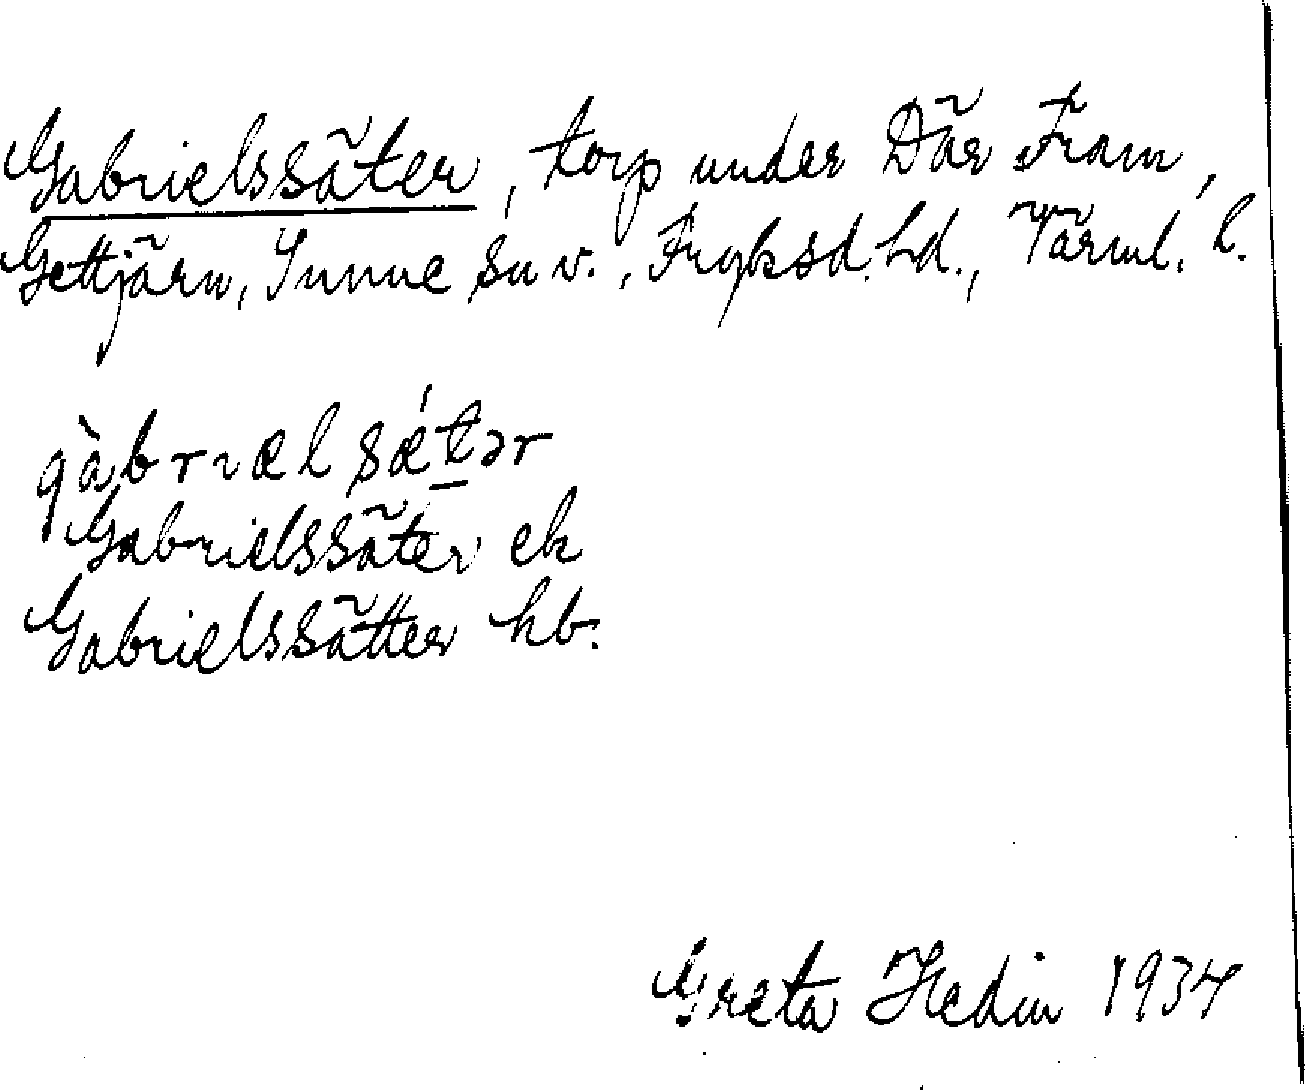 Gabrielssäter, torp under Där Fram,
Gettjärn, Sunne sn v., Fryksd. hd., Värml. l.
gàbrıæl sǽtər
Gabrielssäter ek
Gabrielssätter hb.
Greta Hedin 1934